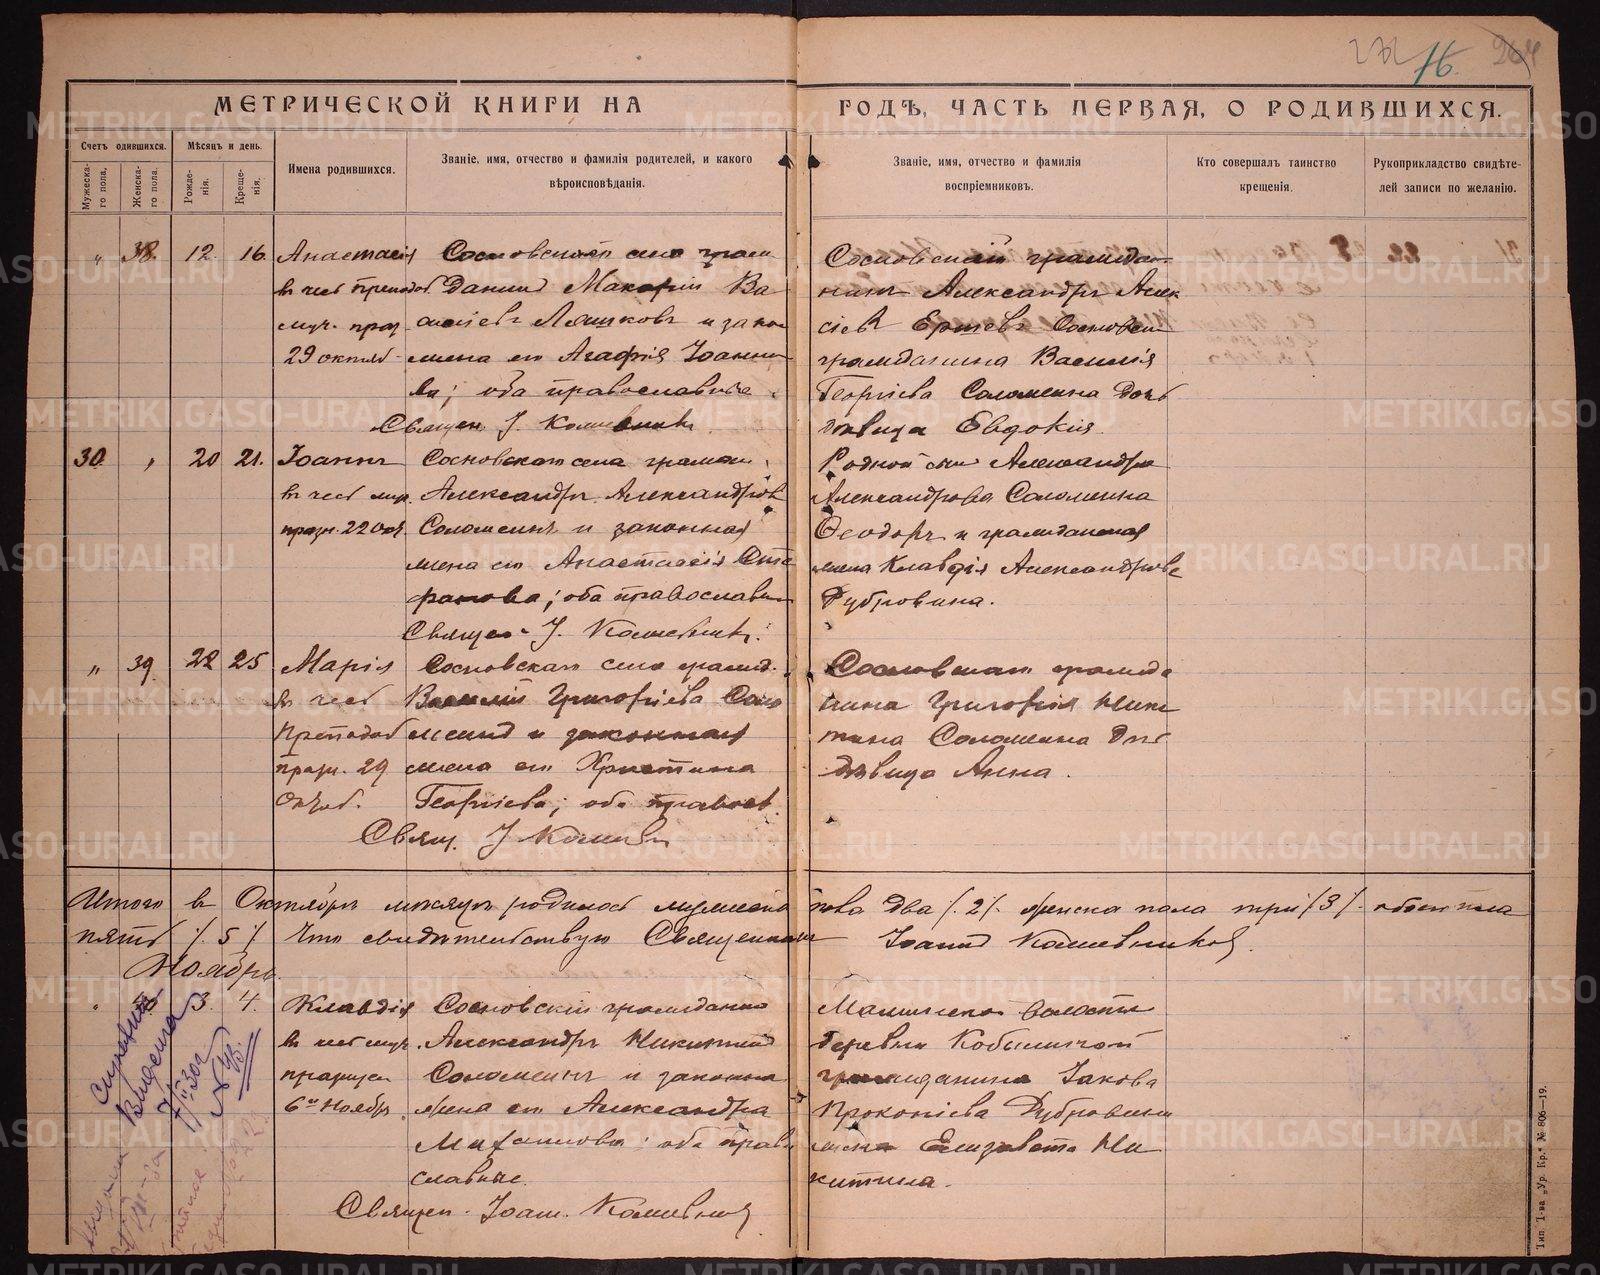 76.
МЕТРИЧЕСКОЙ КНИГИ НА
ГОДЪ, ЧАСТЬ ПЕРВАЯ, О РОДИВШИХСЯ.
Счетъ одившихся.
Мужеска-го пола,
Женска-го пола.
Мѣсяцъ и день.
Рожде-нія.
Креще-нія.
Имена родившихся.
Званіе, имя, отчество и фамилія родителей, и какого
вѣроисповѣданія.
Званіе, имя, отчество и фамилія
воспріемниковъ.
Кто совершалъ таинство
крещенія.
Рукоприкладство свидѣте-
лей записи по желанію.
" 38. 12. 16. Анастасія
в чест преподоб
муч. праз
29 октяб
села граж
Даниил Макарій Ва
силіевъ Ляшковъ и закон
жена его Агафія Іоанно
ва; оба православные.
Священ. І. Кошевник
Сосновскій гражда
нинъ Александръ Алек
сіев Ершевъ Сосновск
гражданина Василія
Георгіева Соломеина дочь
дѣвица Евдокія.
30. " 20 21. Іоаннъ
в чест муч.
празн. 22 Окт
Сосновскаго села граждан
Александръ Александров
Соломеинъ и законная
жена его Анастасія Сте
фанова; оба православн
Священ. І. Кошевник.
Родной сын Александра
Александрова Соломеина
Ѳеодоръ и гражданская
жена Клавдія Александрова
Дубровина.
" 39. 22 25 Марія
в чест
Преподоб
празн. 29
Октоб.
Сосновскаго села гражд.
Василій Григоріева Соло
меинъ и законная
жена его Христина
Георгіева; оба правосл.
Свящ. І Кошевн
Сосновскаго гражда
нина Григорія Ники
тина Соломеина дочь
дѣвица Анна.
Итого в Октябрѣ мѣсяцѣ родилось мужеска пола два /2/. женска пола три /3/. обоего пола
пять /5/ Что свидѣтельствую Священник Іоанн Кошевников.
Ноябрь.
3. 4. Клавдія
в чест муч.
празнуем
6го Ноябр.
Сосновскій гражданин
Александръ Никитин
Соломеинъ и законная
жена его Александра
Михаилова; оба право
славные.
Священ. Іоан. Кошевник
волости
деревни Кобылиной
гражданина Іакова
Прокопіева Дубровина
жена Елизавета Ни
китина.
Справка
Выдана
Тип. Т-ва „Ур. Кр.“ № 806—19.
METRIKI.GASO-URAL.RU